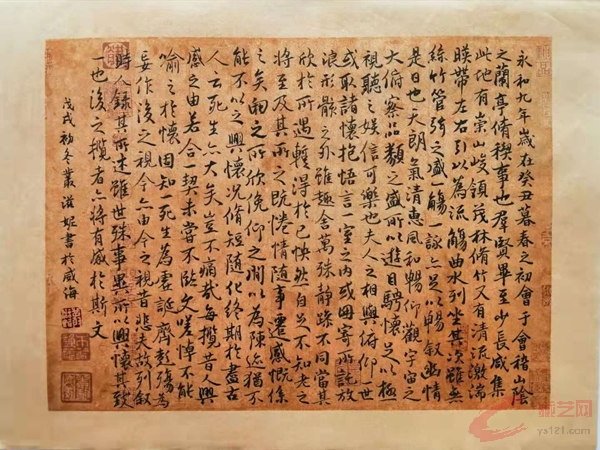 永和九年歲在癸丑暮春之初會于會稽山陰
之蘭亭脩稧事也群賢畢至少長咸集
此地有崇山峻領茂林脩竹又有清流激湍
暎帶左右引以為流觴曲水列坐其次雖無
絲竹管弦之盛一觴一詠亦足以暢叙幽情
是日也天朗氣清惠風和暢仰觀宇宙之
大俯察品類之盛所以遊目騁懷足以極
視聽之娛信可樂也夫人之相與俯仰一世
或取諸懷抱悟言一室之內或因寄所託放
浪形骸之外雖趣舍萬殊靜躁不同當其
欣於所遇暫得於己怏然自足不知老之
將至及其所之既惓情隨事遷感慨係
之矣向之所欣俛仰之閒以為陳迹猶不
能不以之興懷況脩短隨化終期於盡古
人云死生亦大矣豈不痛哉每攬昔人興
感之由若合一契未嘗不臨文嗟悼不能
喻之於懷固知一死生為虛誕齊彭殤為
妄作後之視今亦由今之視昔悲夫故列叙
時人錄其所述雖世殊事異所以興懷其致
一也後之攬者亦將有感於斯文
戊戌初冬叢滋妮書於威海
艺网
ys121.com